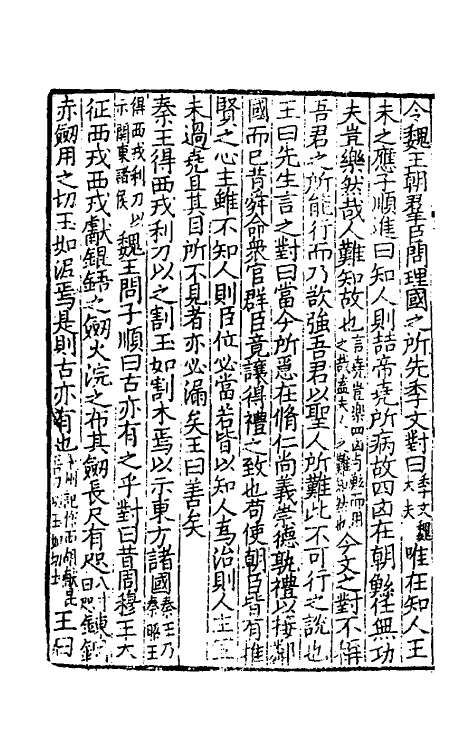 令魏王朝羣臣問理國之所先季文對曰季文魏大夫唯在知人王
未之應子順進曰知人則喆帝堯所病故四凶在朝鯀任無功
夫豈樂然哉人難知故也言堯豈樂四凶與鯀而用之哉人難知故也今文之對不稱
吾君之所能行而乃欲強吾君以聖人所難此不可行之說也
王曰先生言之對曰當今所急在脩仁尚義崇德敦禮以接鄰
國而已昔舜命衆官群臣竟讓得禮之致也苟使朝臣皆有推
賢之心主雖不知人則臣位必當若皆以知人爲治則人主
未過堯且其目所不見者亦必漏矣王曰善矣
秦王得西戎利刀以之割玉如割木焉以示東方諸國秦王乃秦昭王
得西戎利刀以示關東諸侯魏王問子順曰古亦有之乎對曰昔周穆王大
征西戎西戎獻錕鋙之劒火浣之布其劒長尺有咫八寸曰咫鍊鋼
赤劒用之切玉如泥焉是則古亦有也王曰